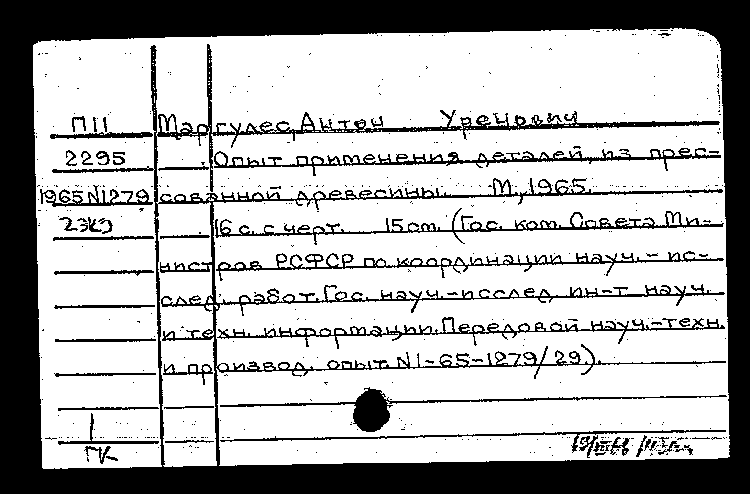 П11 Маргулес, Антон Уренович
2295 Опыт применения деталей из прес-
1965 N1279 сованной древесины. М., 1965.
2экз 16 с. с черт. 15 см. (Гос. ком. Совета Ми-
нистров РСФСР по координации науч.-ис-
след. работ. Гос. науч.-исслед. ин-т науч.
и техн. информации. Передовой науч.-техн.
и производ. опыт. N1-65-1279/29).
1
ГК